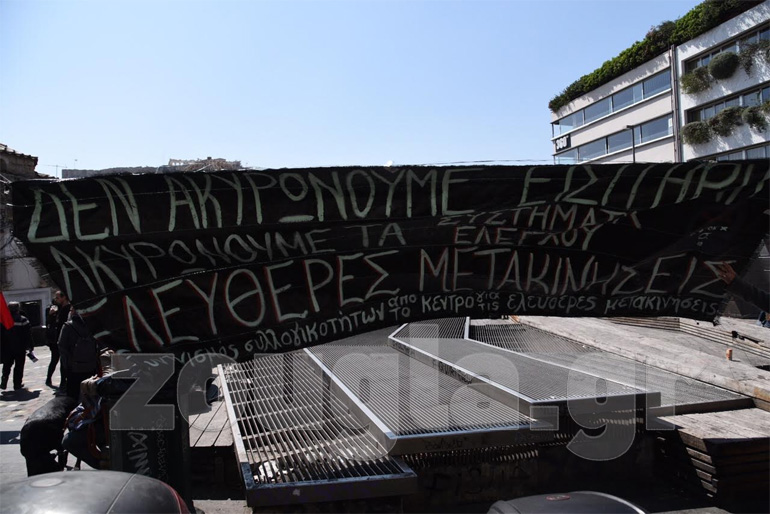 ΔΕΝ ΑΚΥΡΩΝΟΥΜΕ ΕΙΣΙΤΗΡΙΑ
ΑΚΥΡΩΝΟΥΜΕ ΤΑ ΣΥΣΤΗΜΑΤΑ ΕΛΕΓΧΟΥ
ΕΛΕΥΘΕΡΕΣ ΜΕΤΑΚΙΝΗΣΕΙΣ
συλλογικοτήτων από το κέντρο για ελεύθερες μετακινήσεις
zougla.gr